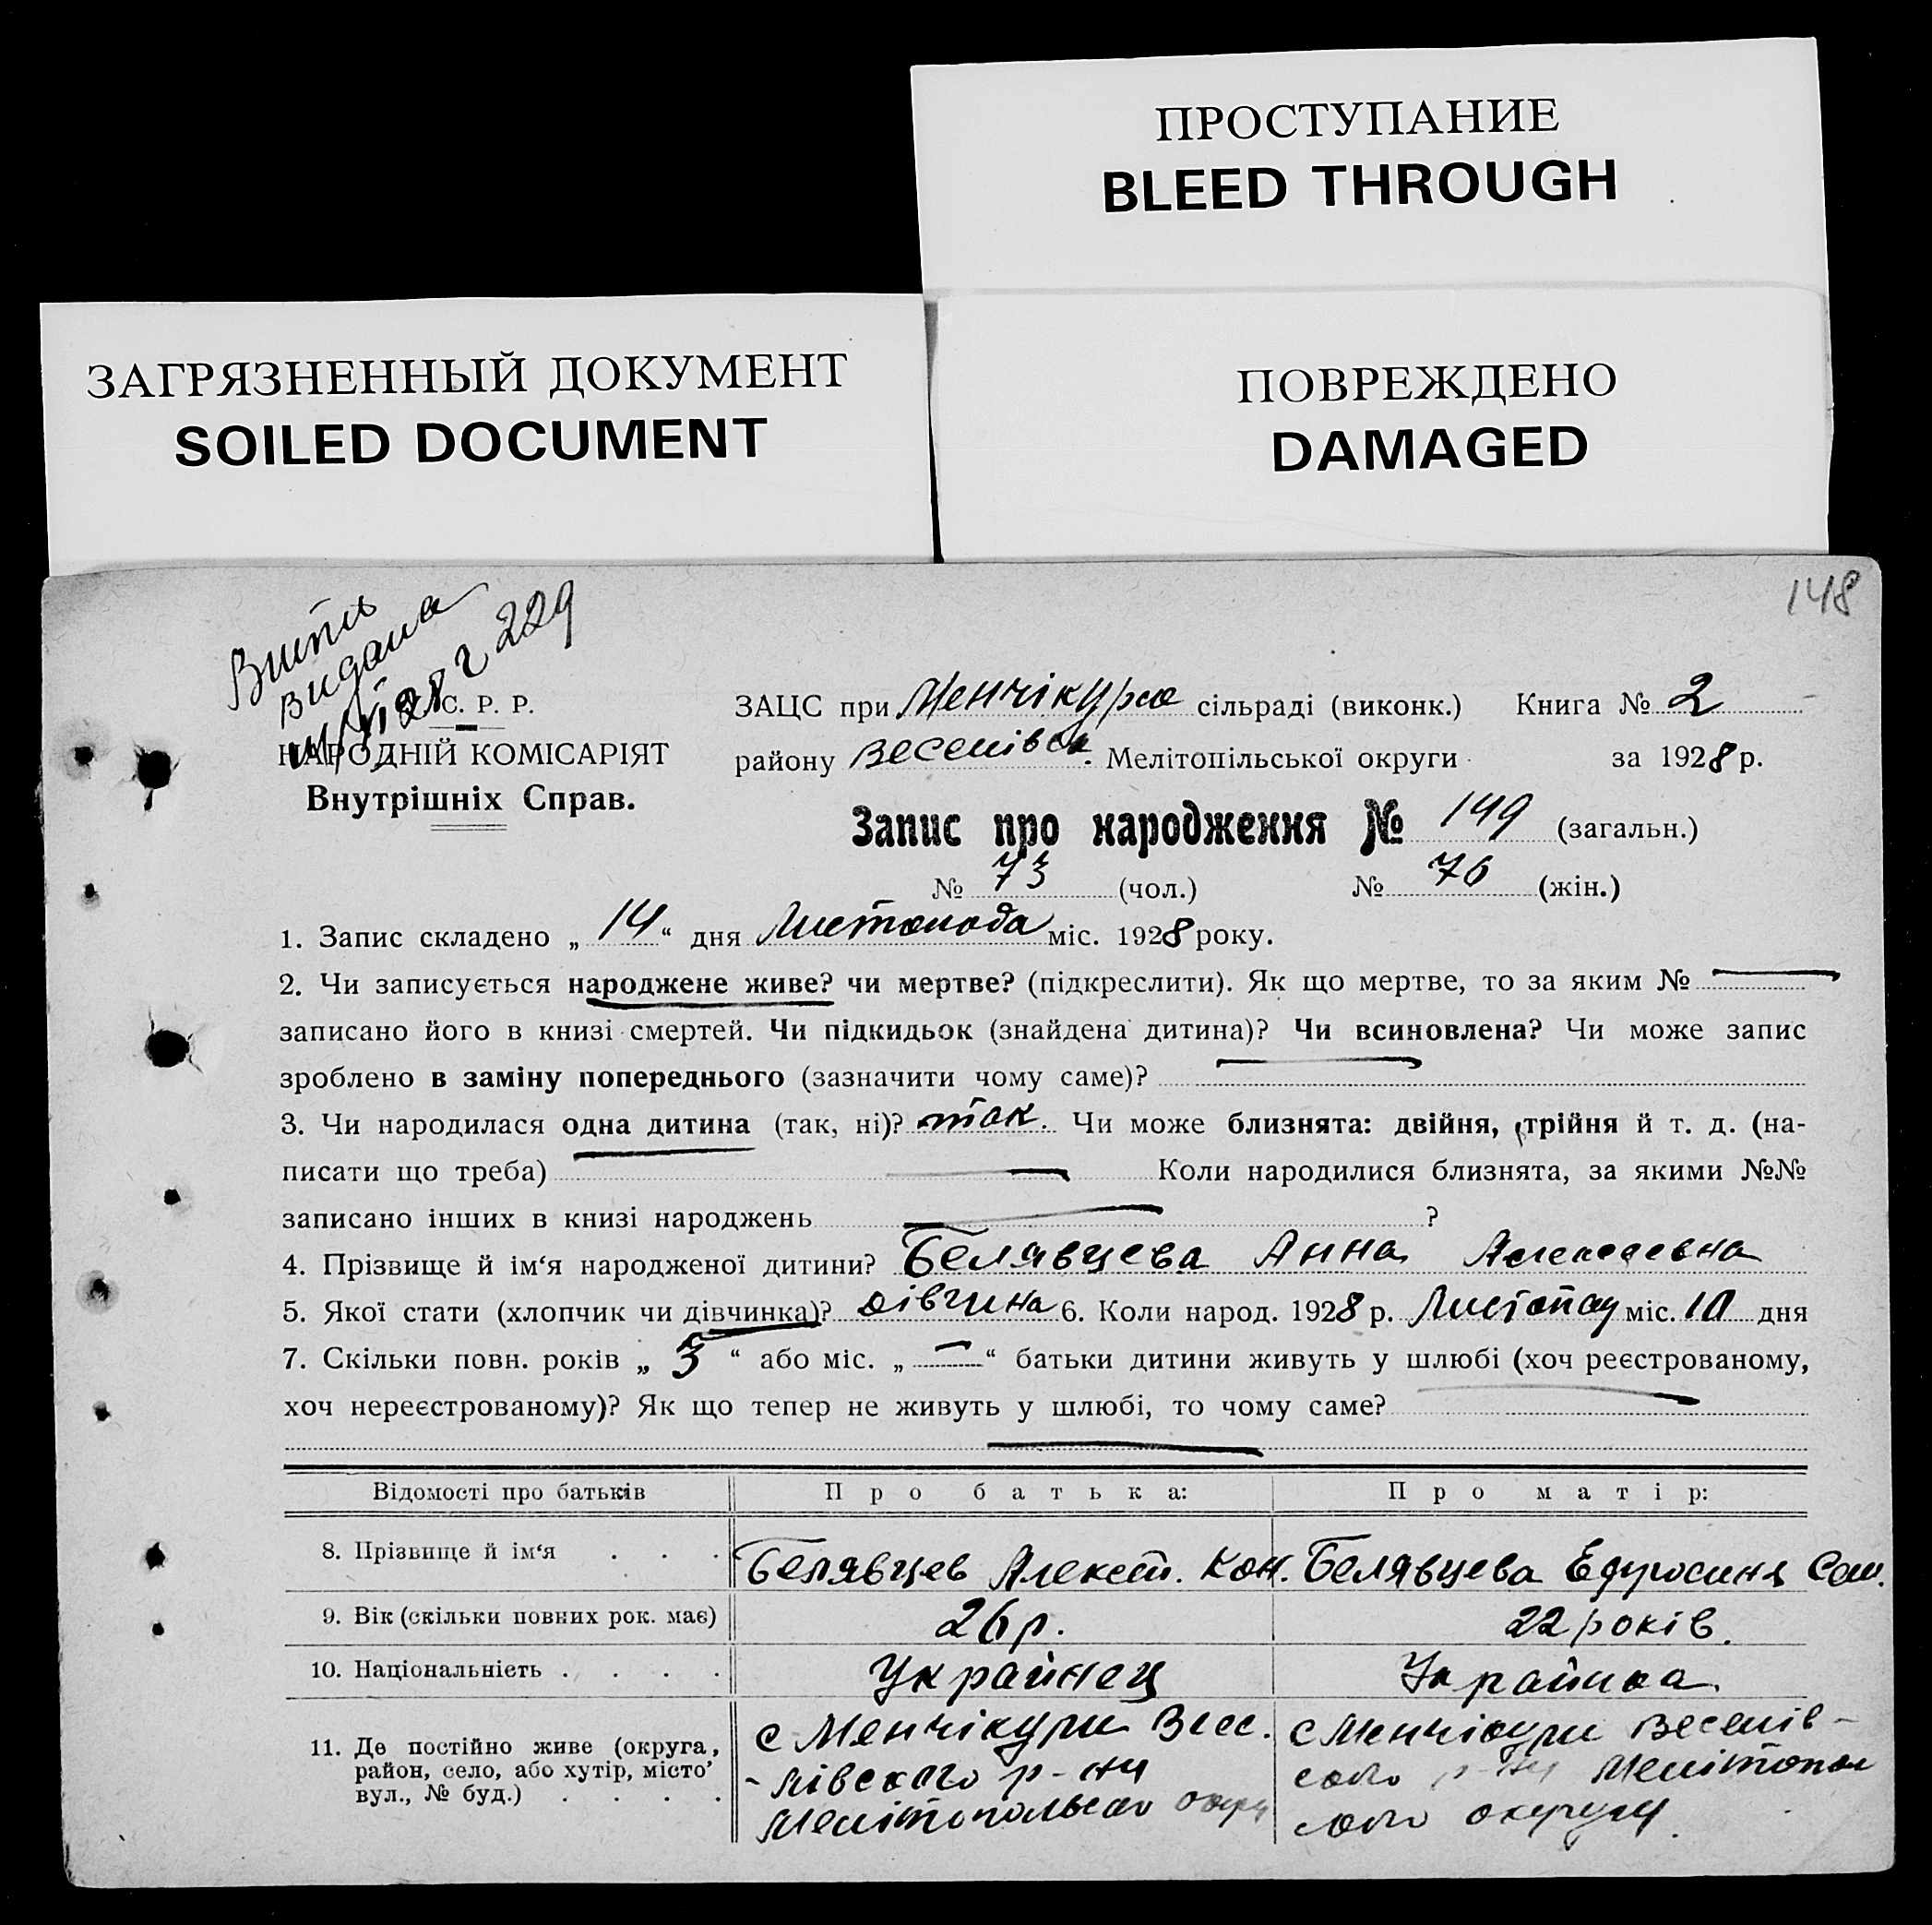 ПРОСТУПАНИЕ
BLEED THROUGH
ЗАГРЯЗНЕННЫЙ ДОКУМЕНТ
SOILED DOCUMENT
ПОВРЕЖДЕНО
DAMAGED
148
Витяг
видана
229
С. Р. Р.
НАРОДНІЙ КОМІСАРІЯТ
Внутрішніх Справ.
ЗАЦС при Менчікурко сільраді (виконк.) Книга № 2
району Веселівск. Мелітопільської округи за 1928 р.
Запис про народження № 149 (загальн.)
№ 73 (чол.) № 76 (жін.)
1. Запис складено „ 14 “ дня Листопада міс. 1928 року.
2. Чи записується народжене живе? чи мертве? (підкреслити). Як що мертве, то за яким №
записано його в книзі смертей. Чи підкидьок (знайдена дитина)? Чи всиновлена? Чи може запис
зроблено в заміну попереднього (зазначити чому саме)?
3. Чи народилася одна дитина (так, ні)? так. Чи може близнята: двійня, трійня й т. д. (на-
писати що треба) Коли народилися близнята, за якими №№
записано інших в книзі народжень ?
4. Прізвище й ім‘я народженої дитини? Белявцева Анна Алексеевна
5. Якої стати (хлопчик чи дівчинка)? дівчина 6. Коли народ. 1928 р. Листопад міс. 10 дня
7. Скільки повн. років „ 3 “ або міс. „ — “ батьки дитини живуть у шлюбі (хоч реєстрованому,
хоч нереєстрованому)? Як що тепер не живуть у шлюбі, то чому саме?
Відомості про батьків Про батька: Про матір:
8. Прізвище й ім‘я . . . Белявцев Алекст. Кон. Белявцева Ефросиня Сем.
9. Вік (скільки повних рок. має) 26 р. 22 років.
10. Національність . . . . Українец Українка
11. Де постійно живе (округа, с Менчікури Весе. с Менчікури Веселів-
район, село, або хутір, місто’ -лівского р-ну ского р-ну Мелітопол
вул., № буд.) . . . . Мелітопольско окру ского округу.